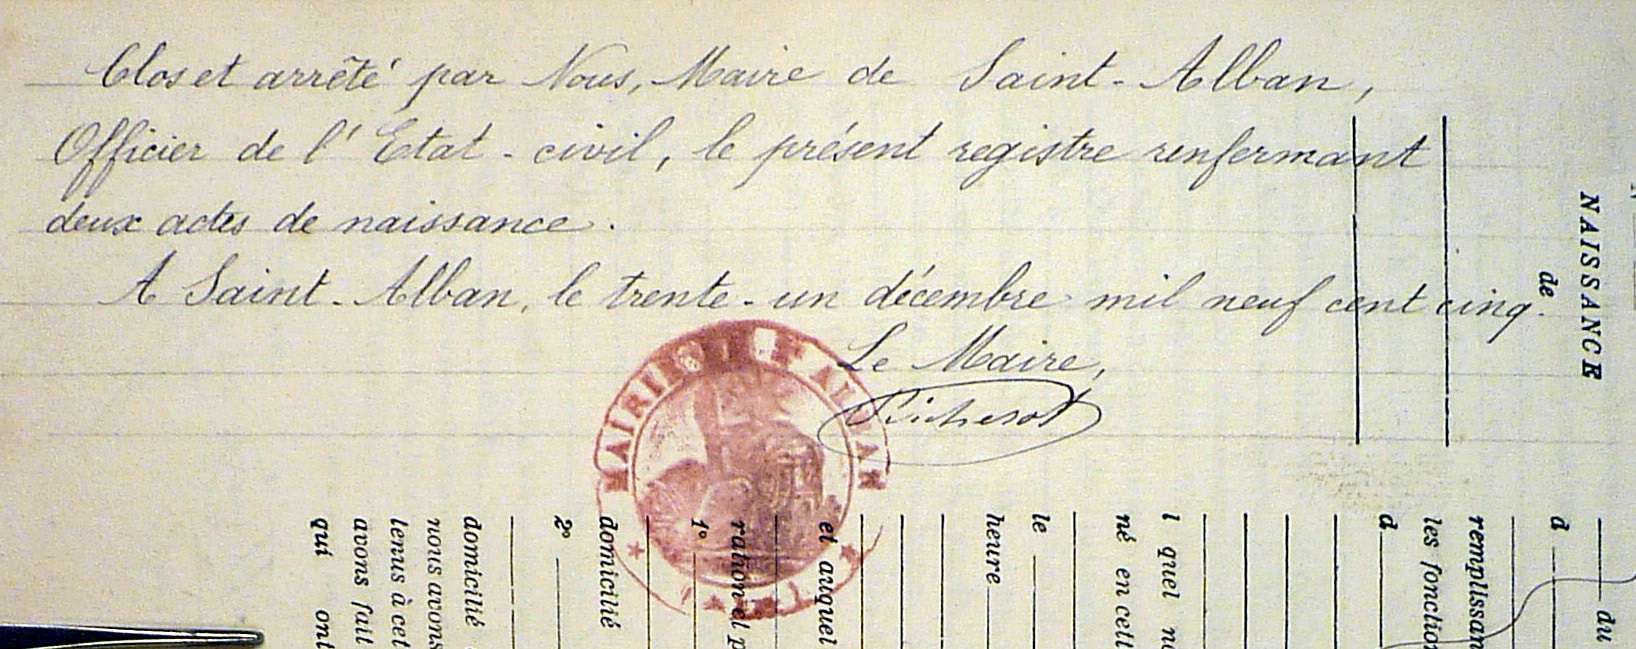 Clos et arrêté par Nous, Maire de Saint-Alban,
Officier de l'Etat-civil, le présent registre renfermant
deux actes de naissance.
A Saint-Alban, le trente-un décembre mil neuf cent cinq.
Le Maire,
MAIRIE ST ALBAN
NAISSANCE
de
du
d
remplissan
les fonction
d
l quel
né en cell
le
heure
et auquel
1°
domicilié
2°
domicilié
nous avons
tenus à cet
avons fait
qui ont